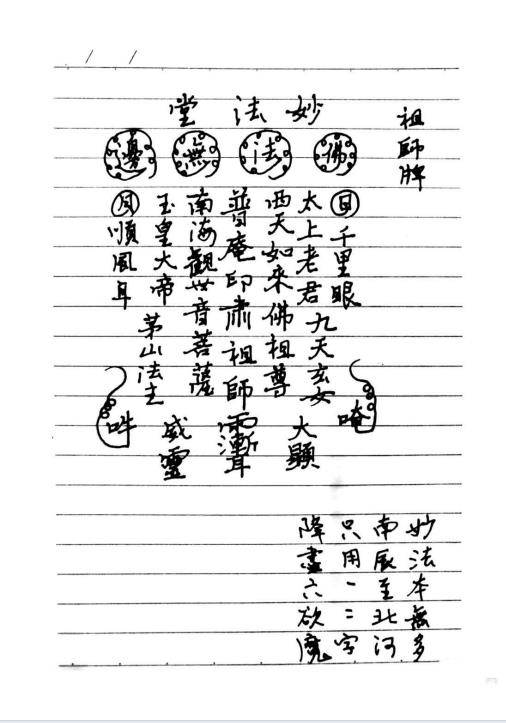 祖師牌
妙法堂
佛法無邊
日千里眼
太上老君九天玄女
西天如來佛祖尊
普庵印肅祖師
南海觀世音菩薩
玉皇大帝茅山法主
月順風耳
唵
大顯
威靈
吽
妙法本無多
南辰至北河
只用一二字
降盡六欲魔